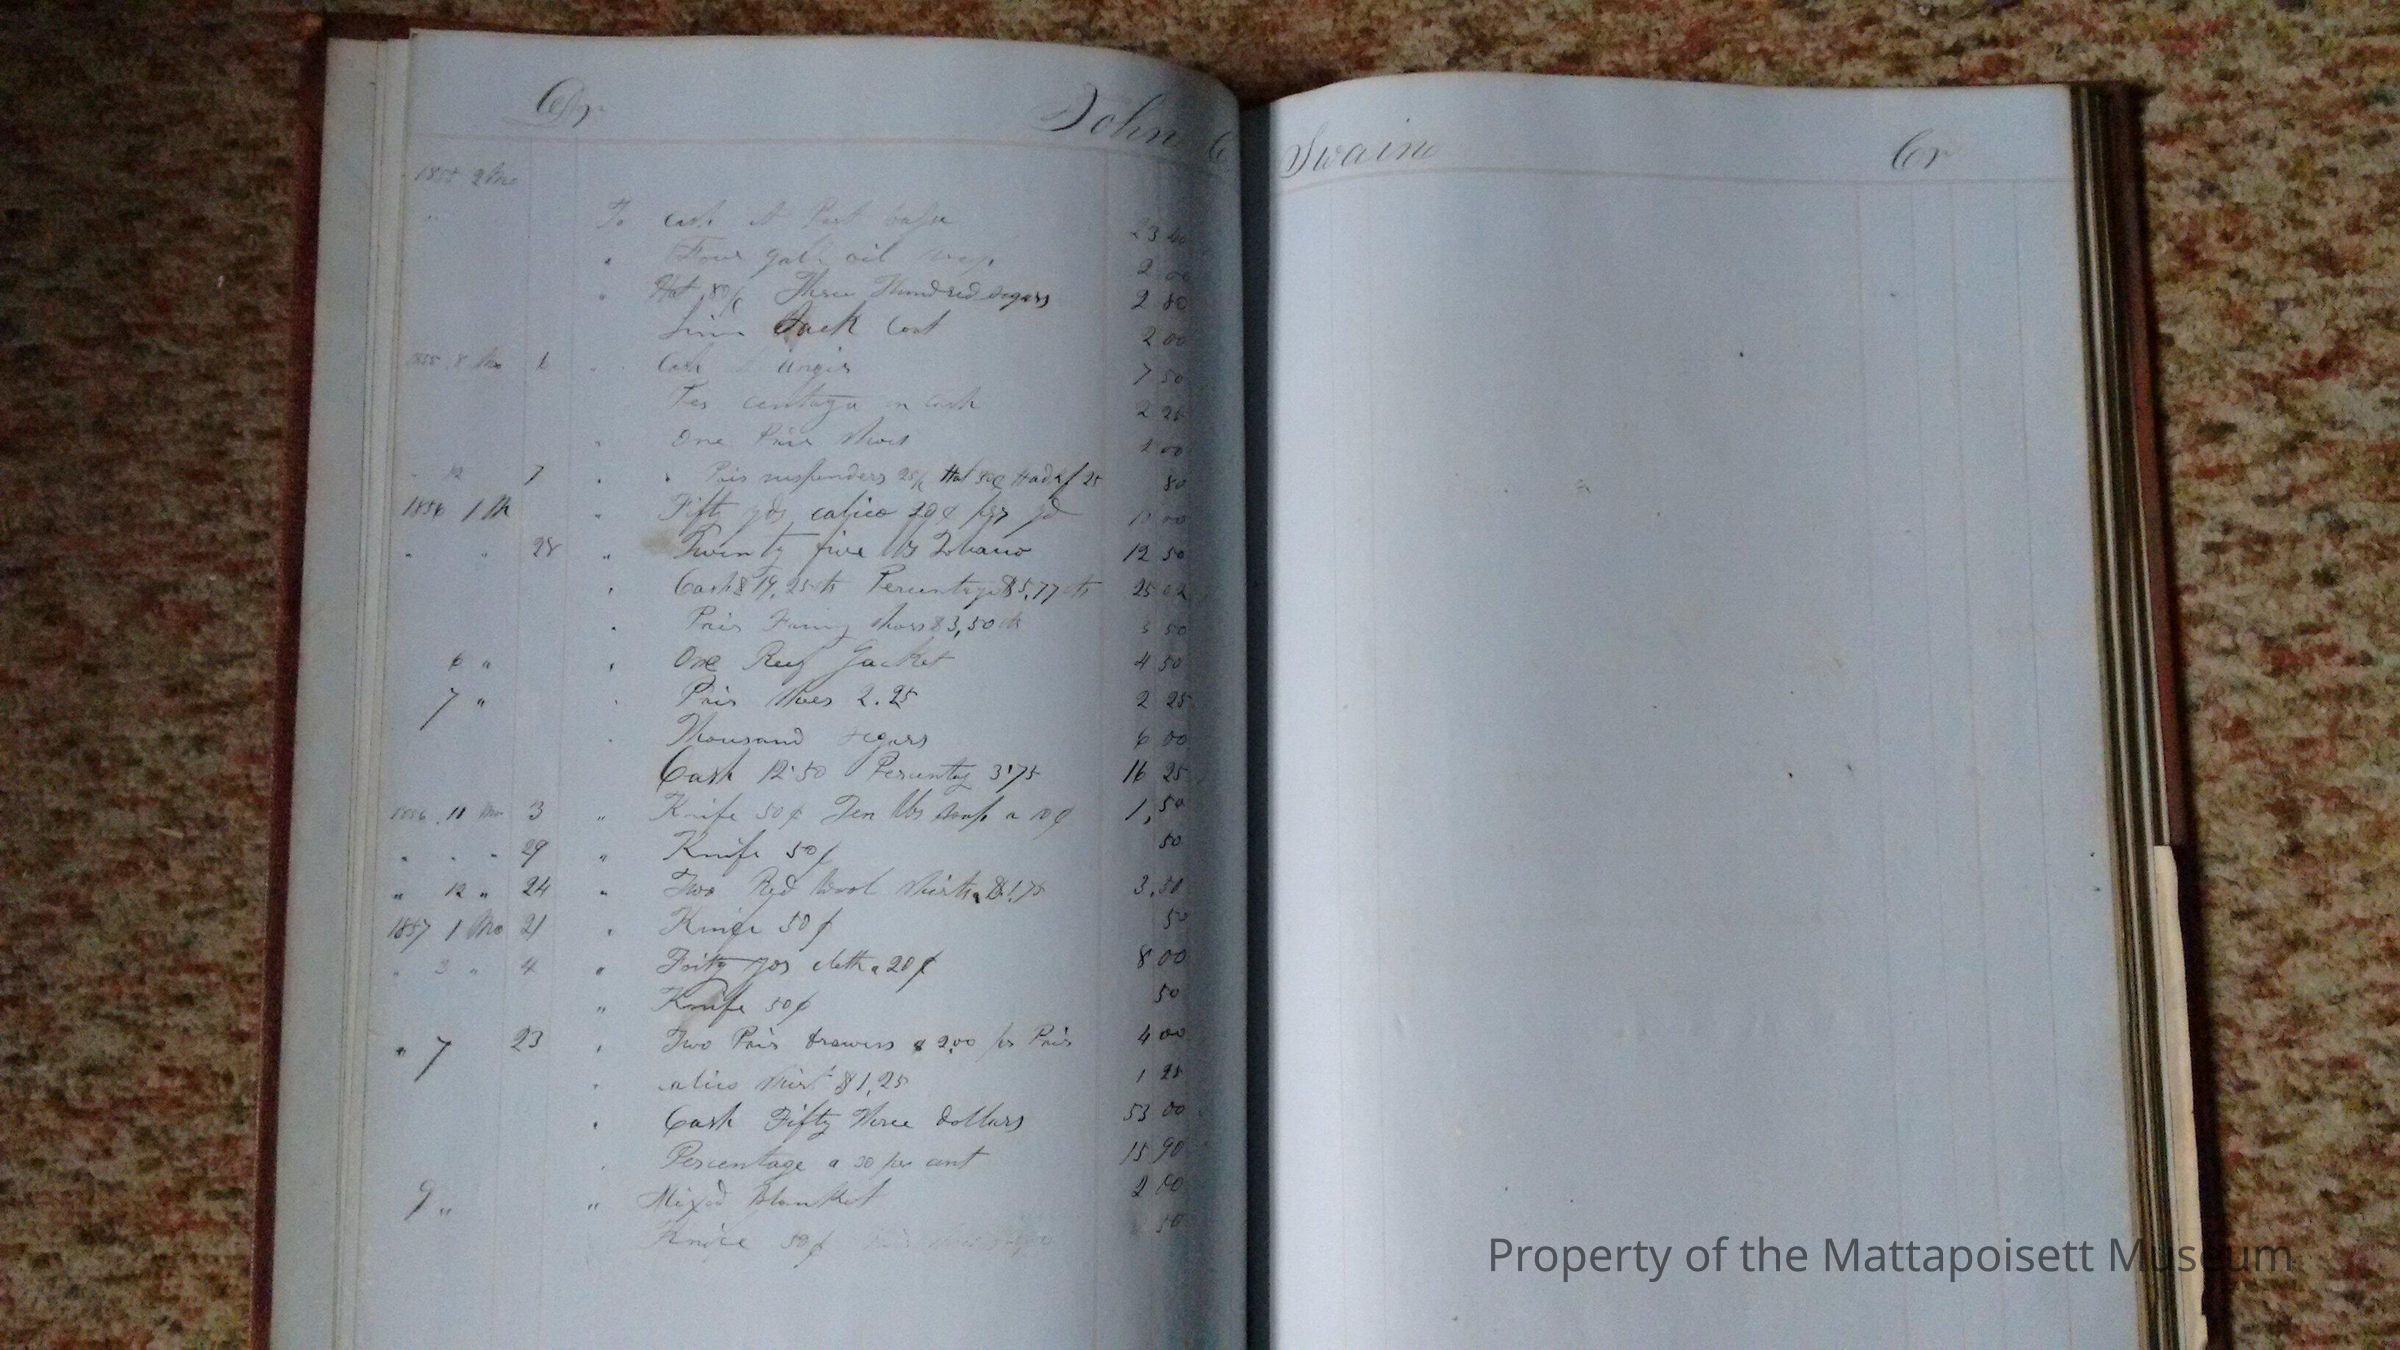 Dr John C Swain Cr
1855 2 Mo
" To Cash at Port 23 40
" Four galls oil 2 00
" Hat 80/c Three Hundred segars 2 80
Sack Coat 2 00
1855 8 Mo 1 " Cash 7 50
centage on Cash 2 25
" One Pair Shoes 2 00
" 12 7 " " Pair suspenders 25/c Hat 50¢ Hadkf 25 80
1856 1 M " Fifty yds calico 20¢ per yd 10 00
" " 28 " Twenty five lbs Tobacco 12 50
" Cash $19,25cts Percentage $5,77cts 25 02
" Pair shoes $3,50cts 3 50
6 " " One Reef Jacket 4 50
7 " " Pair Shoes 2.25 2 25
" Thousand segars 6 00
Cash 12.50 Percentag 3.75 16 25
1856 11 Mo 3 " Knife 50¢ Ten lbs soap a 10¢ 1,50
" " " 29 " Knife 50¢ 50
" 12 " 24 " Two Red Wool Shirts a $1.75 3,50
1857 1 Mo 21 " Knife 50¢ 50
" 3 " 4 " Forty yds cloth a 20¢ 8 00
" Knife 50¢ 50
" 7 23 " Two Pair drawers a 2.00 per Pair 4 00
" calico Shirt $1,25 1 25
" Cash Fifty Three dollars 53 00
" Percentage a 30 per cent 15 90
9 " " Mixed Blanket 2 00
Knife 50¢ 50
Property of the Mattapoisett Museum